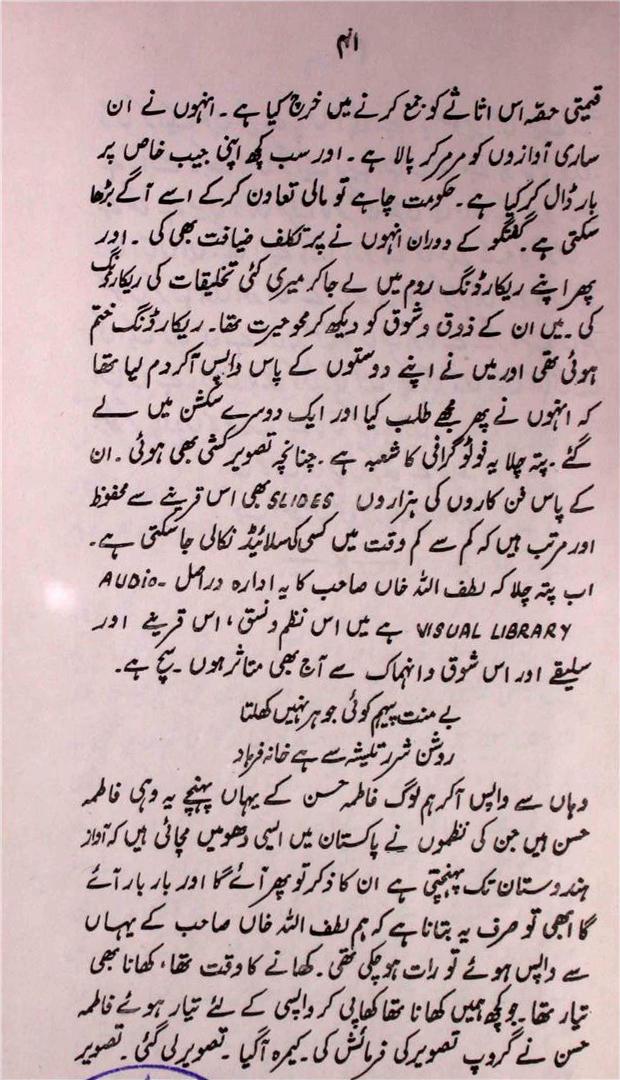 ۴۱
قیمتی حصّہ اس اثاثے کو جمع کرنے میں خرچ کیا ہے ۔ انہوں نے ان
ساری آوازوں کو مرمر کر پالا ہے ۔ اور سب کچھ اپنی جیب خاص پر
بار ڈال کر کیا ہے ۔ حکومت چاہے تو مالی تعاون کر کے اسے آگے بڑھا
سکتی ہے ۔ گفتگو کے دوران انہوں نے پرتکلف ضیافت بھی کی ۔ اور
پھر اپنے ریکارڈنگ روم میں لے جا کر میری کئی تخلیقات کی ریکارڈنگ
کی ۔ میں ان کے ذوق و شوق کو دیکھ کر محو حیرت تھا ۔ ریکارڈنگ ختم
ہوئی تھی اور میں نے اپنے دوستوں کے پاس واپس آ کر دم لیا تھا
کہ انہوں نے پھر مجھے طلب کیا اور ایک دوسرے سکشن میں لے
گئے ۔ پتہ چلا یہ فوٹو گرافی کا شعبہ ہے ۔ چنانچہ تصویر کشی بھی ہوئی ۔ ان
کے پاس فن کاروں کی ہزاروں SLIDES بھی اس قرینے سے محفوظ
اور مرتب ہیں کہ کم سے کم وقت میں کسی کی سلائیڈ نکالی جا سکتی ہے ۔
اب پتہ چلا کہ لطف اللہ خاں صاحب کا یہ ادارہ دراصل AUDIO-
VISUAL LIBRARY ہے میں اس نظم و نسق ، اس قرینے اور
سلیقے اور اس شوق و انہماک سے آج بھی متاثر ہوں ۔ سچ ہے ۔
بے منت پیہم کوئی جوہر نہیں کھلتا
روشن شرر تیشہ سے ہے خانہ فرہاد
وہاں سے واپس آ کر ہم لوگ فاطمہ حسن کے یہاں پہنچے یہ وہی فاطمہ
حسن ہیں جن کی نظموں نے پاکستان میں ایسی دھومیں مچائی ہیں کہ آواز
ہندوستان تک پہنچتی ہے ان کا ذکر تو پھر آئے گا اور بار بار آئے
گا ابھی تو صرف یہ بتانا ہے کہ ہم لطف اللہ خاں صاحب کے یہاں
سے واپس ہوئے تو رات ہو چکی تھی ۔ کھانے کا وقت تھا ، کھانا بھی
تیار تھا ۔ جو کچھ ہمیں کھانا تھا کھا پی کر واپسی کے لئے تیار ہوئے فاطمہ
حسن نے گروپ تصویر کی فرمائش کی ۔ کیمرہ آ گیا ۔ تصویر لی گئی ۔ تصویر